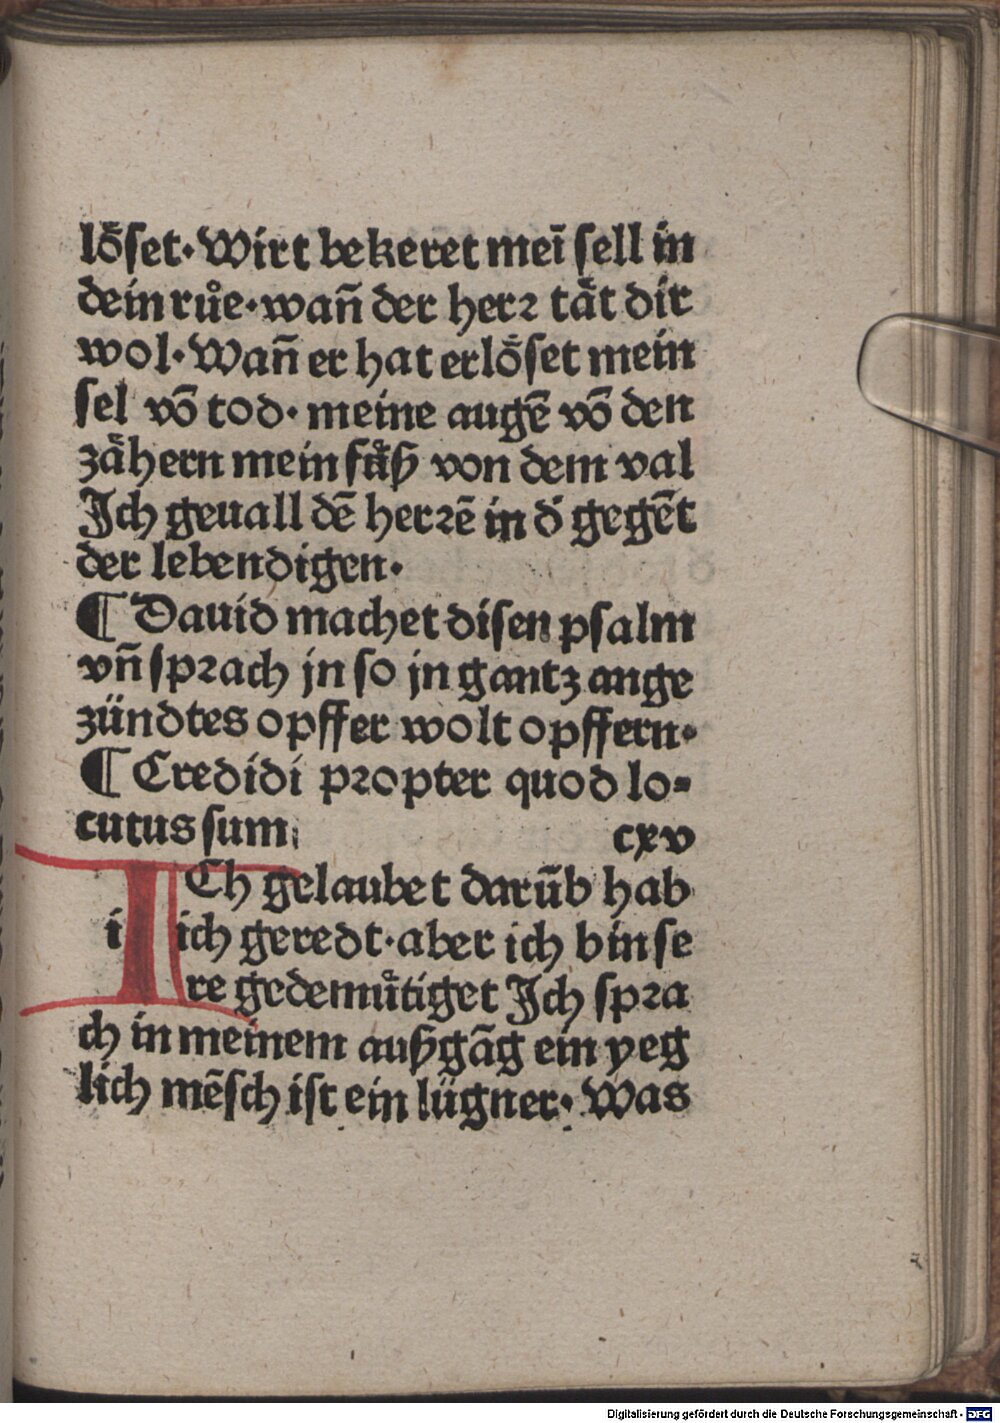 loͤſet·Wirt bekeret meī ſell in
dein ruͦe·wañ der herꝛ taͤt dir
wol·Wañ er hat erloͤſet mein
ſel võ tod·meine augē võ den
zaͤhern mein fuͤß von dem val
Ich geuall dē herꝛē in d̓ gegēt
der lebendigen·
¶ Dauid machet diſen pſalm
vñ ſpꝛach jn ſo jn gantz ange
zündtes opffer wolt opffern·
¶ Credidi pꝛopter quod lo⸗
cutus ſum. cxv
i Ich gelaubet darūb hab
ich geredt·aber ich bin ſe
re gedemuͤtiget Ich ſpꝛa
ch in meinem außgāg ein yeg
lich mēſch iſt ein lügner·Was
Digitalisierung gefördert durch die Deutsche Forschungsgemeinschaft - DFG